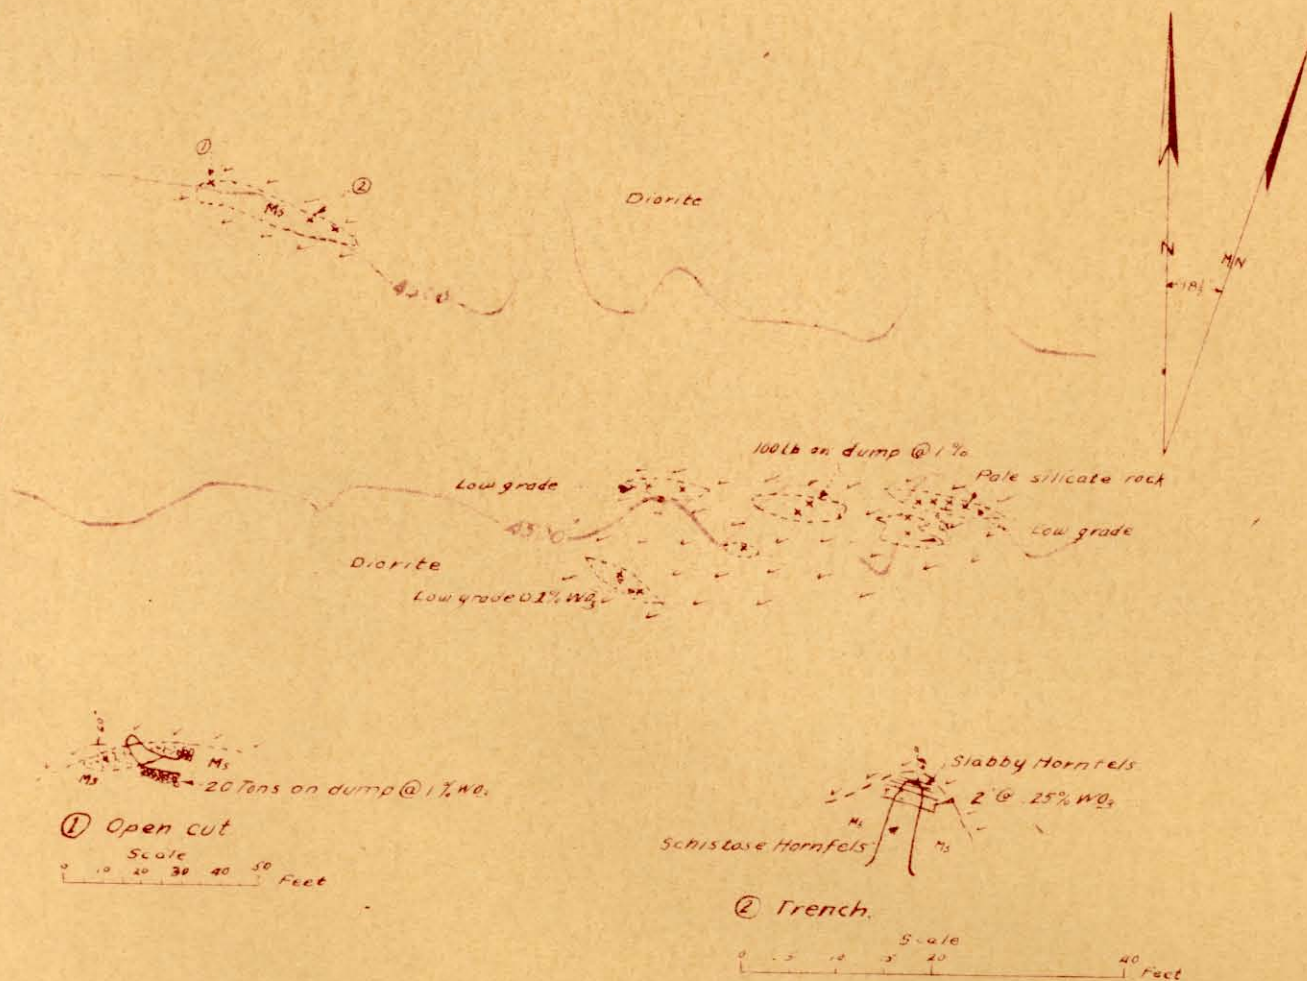 ①
②
Ms
Diorite
N
MN
100 lb on dump @ 1%
Low grade
Pale silicate rock
4500'
Low grade
Diorite
Low grade 0.1% WO3
Ms
Ms
20 Tons on dump @ 1% WO3
① Open cut
Scale
0 10 20 30 40 50
Feet
Slabby Hornfels
2' @ .25% WO3
Ms
Schistose Hornfels
Ms
② Trench.
Scale
0 5 10 5 20 40
Feet